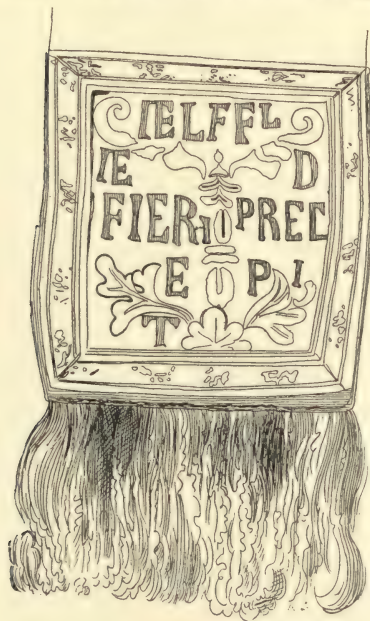 ÆLFFL
Æ D
FIERI PREC
E P I
T